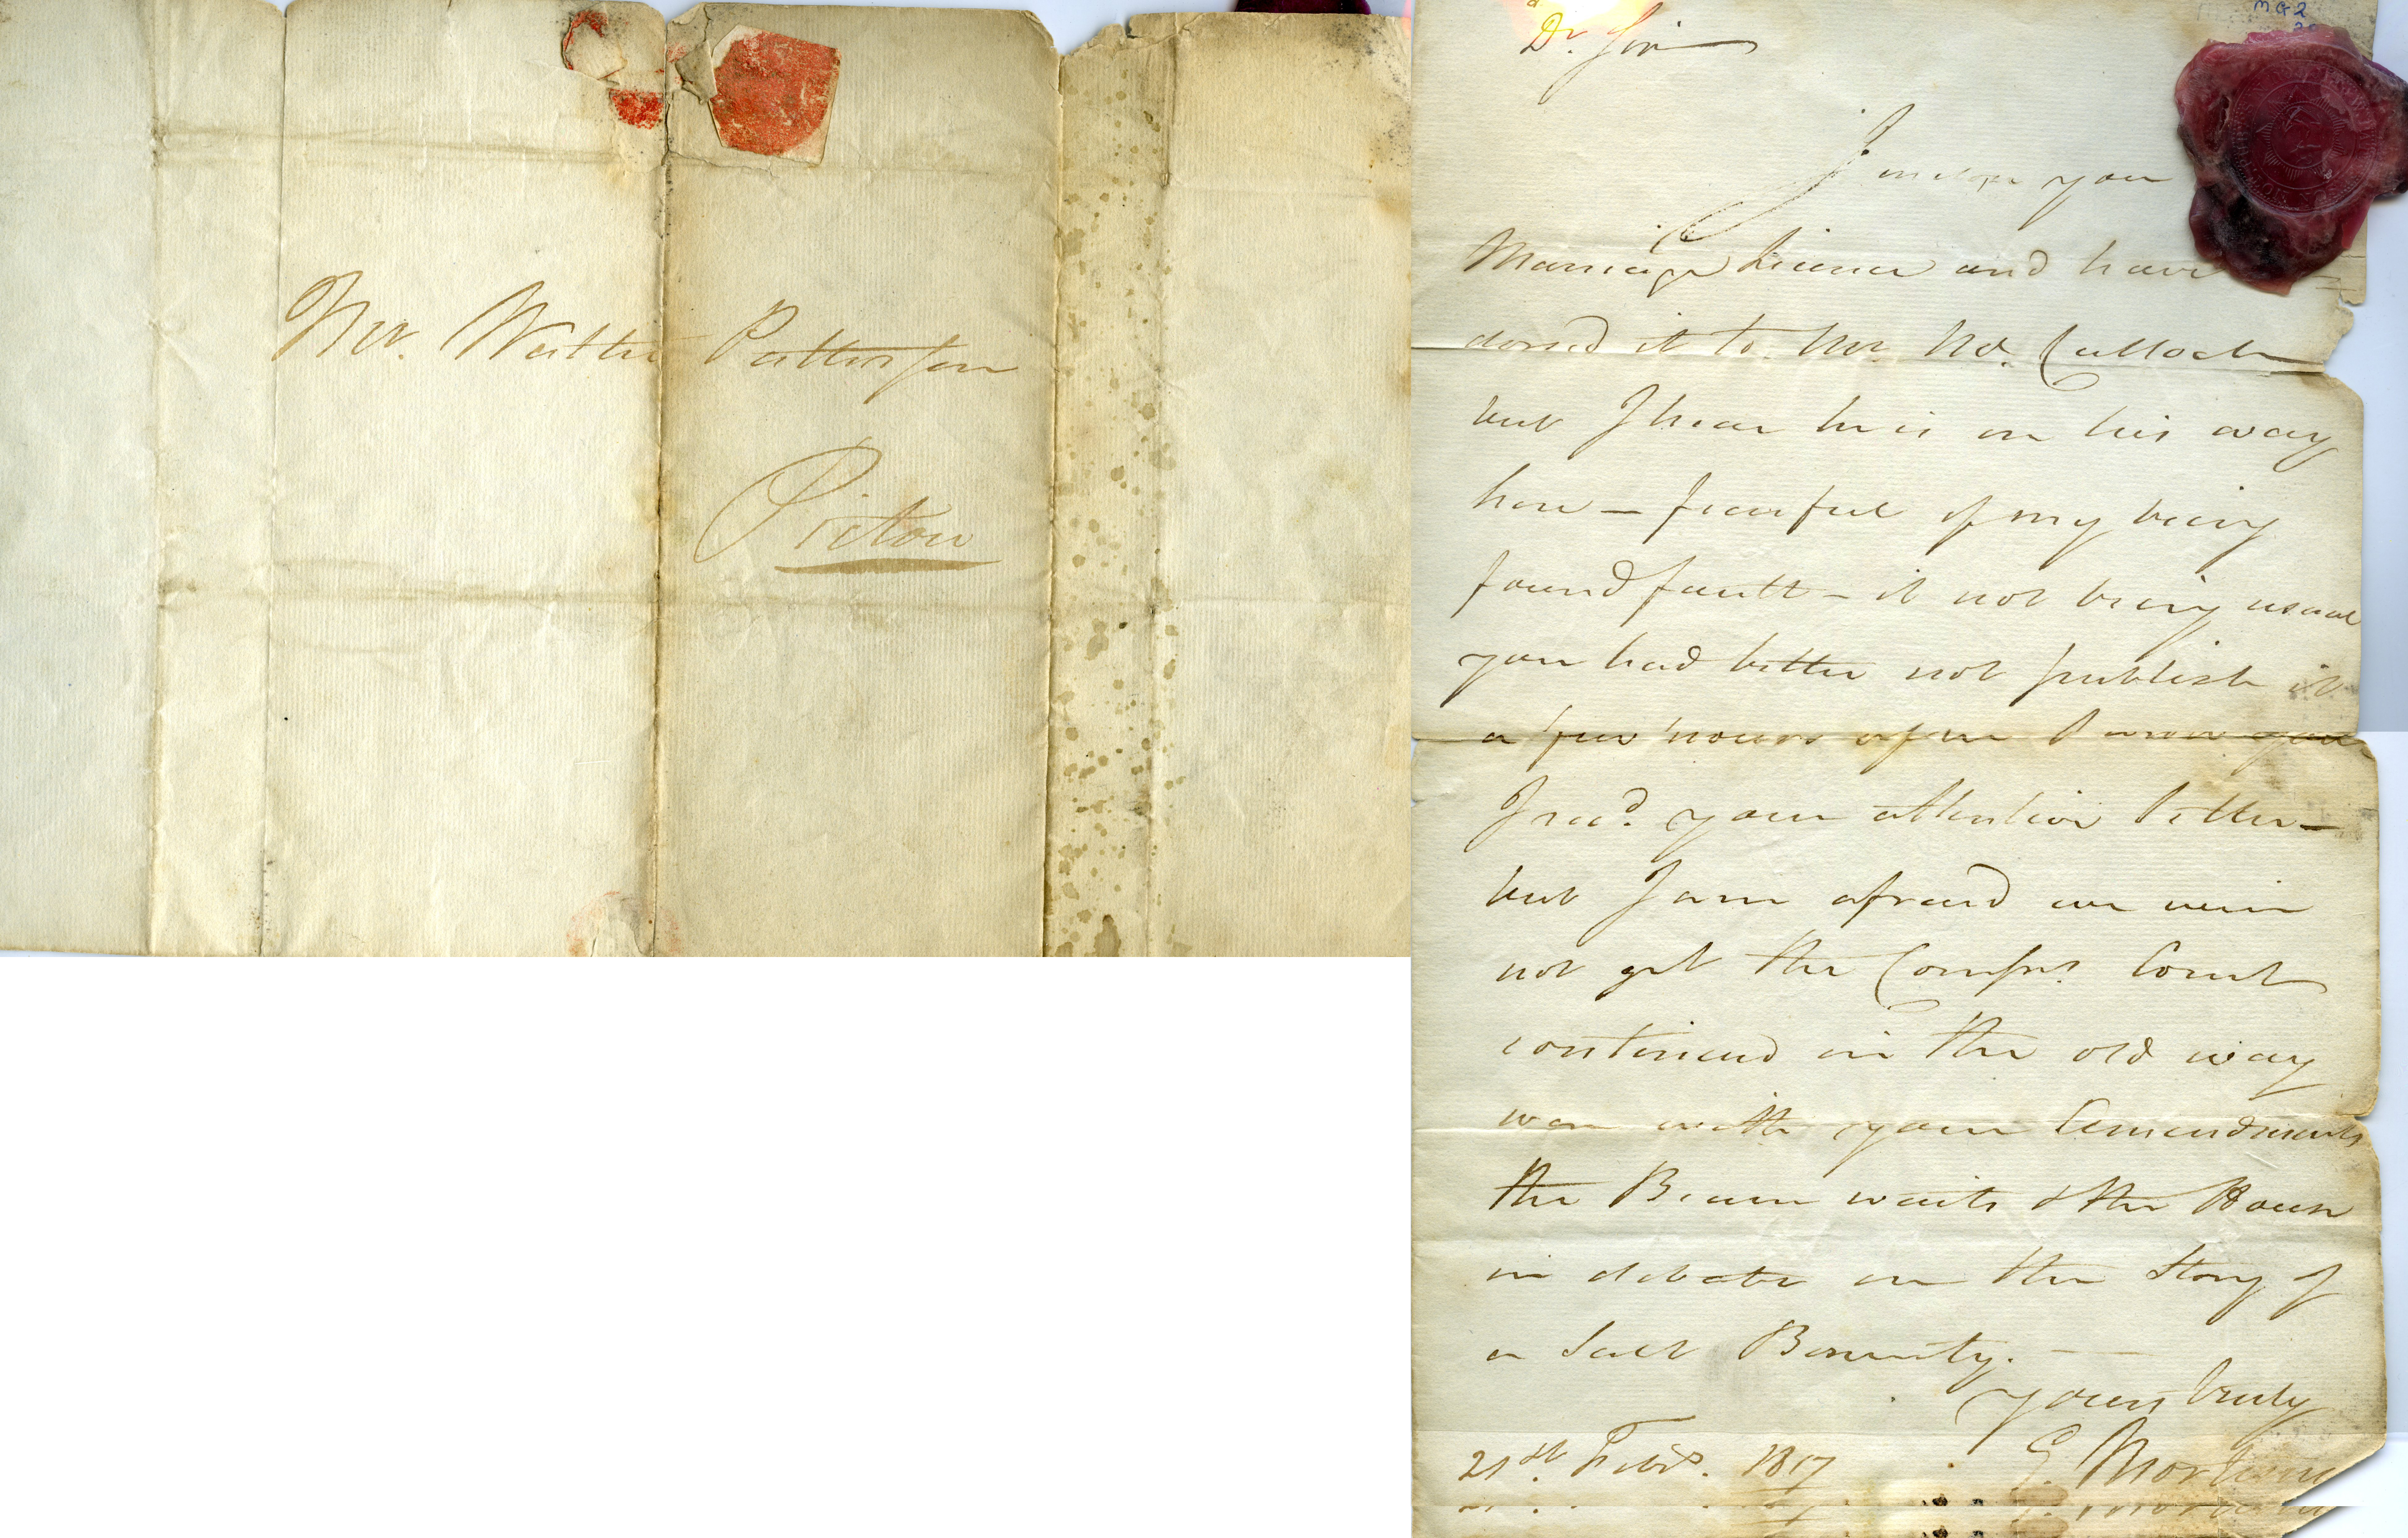 Mr. Walter Patterson
Pictou
MG2
Dr. Sir
I inclose you
Marriage Licence and have
dorsed it to Mr. Mc.Culloch
but I hear he is on his way
here — fearful of my being
found fault — it not being usual
you had better not publish it
a few hours after I wrote you
I recd. your attentive letter —
but I am afraid we will
not get the Comrs. Court
continued in the old way
with your Amendments
the Beam waits & the House
in debate on the Story of
a Salt Bounty. — —
yours truly
21st. Feby. 1817 E. Mortimer